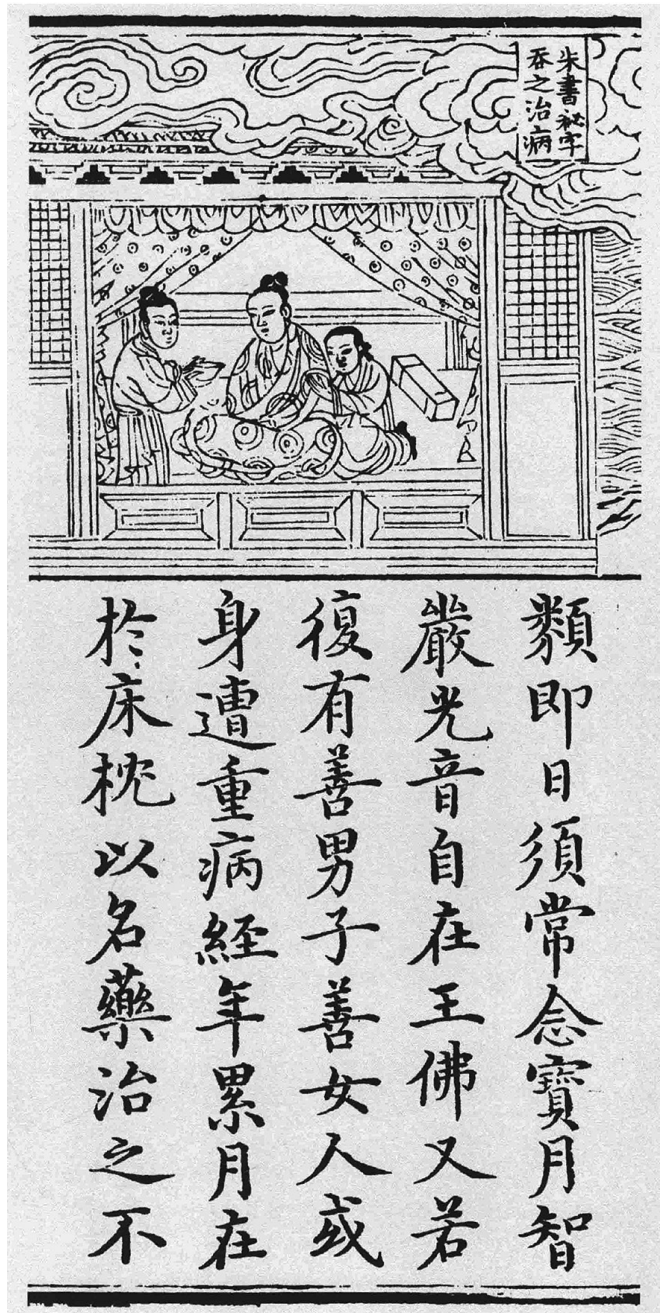 朱書祕字
吞之治病
類即日須常念寶月智
嚴光音自在王佛又若
復有善男子善女人或
身遭重病經年累月在
於床枕以名藥治之不